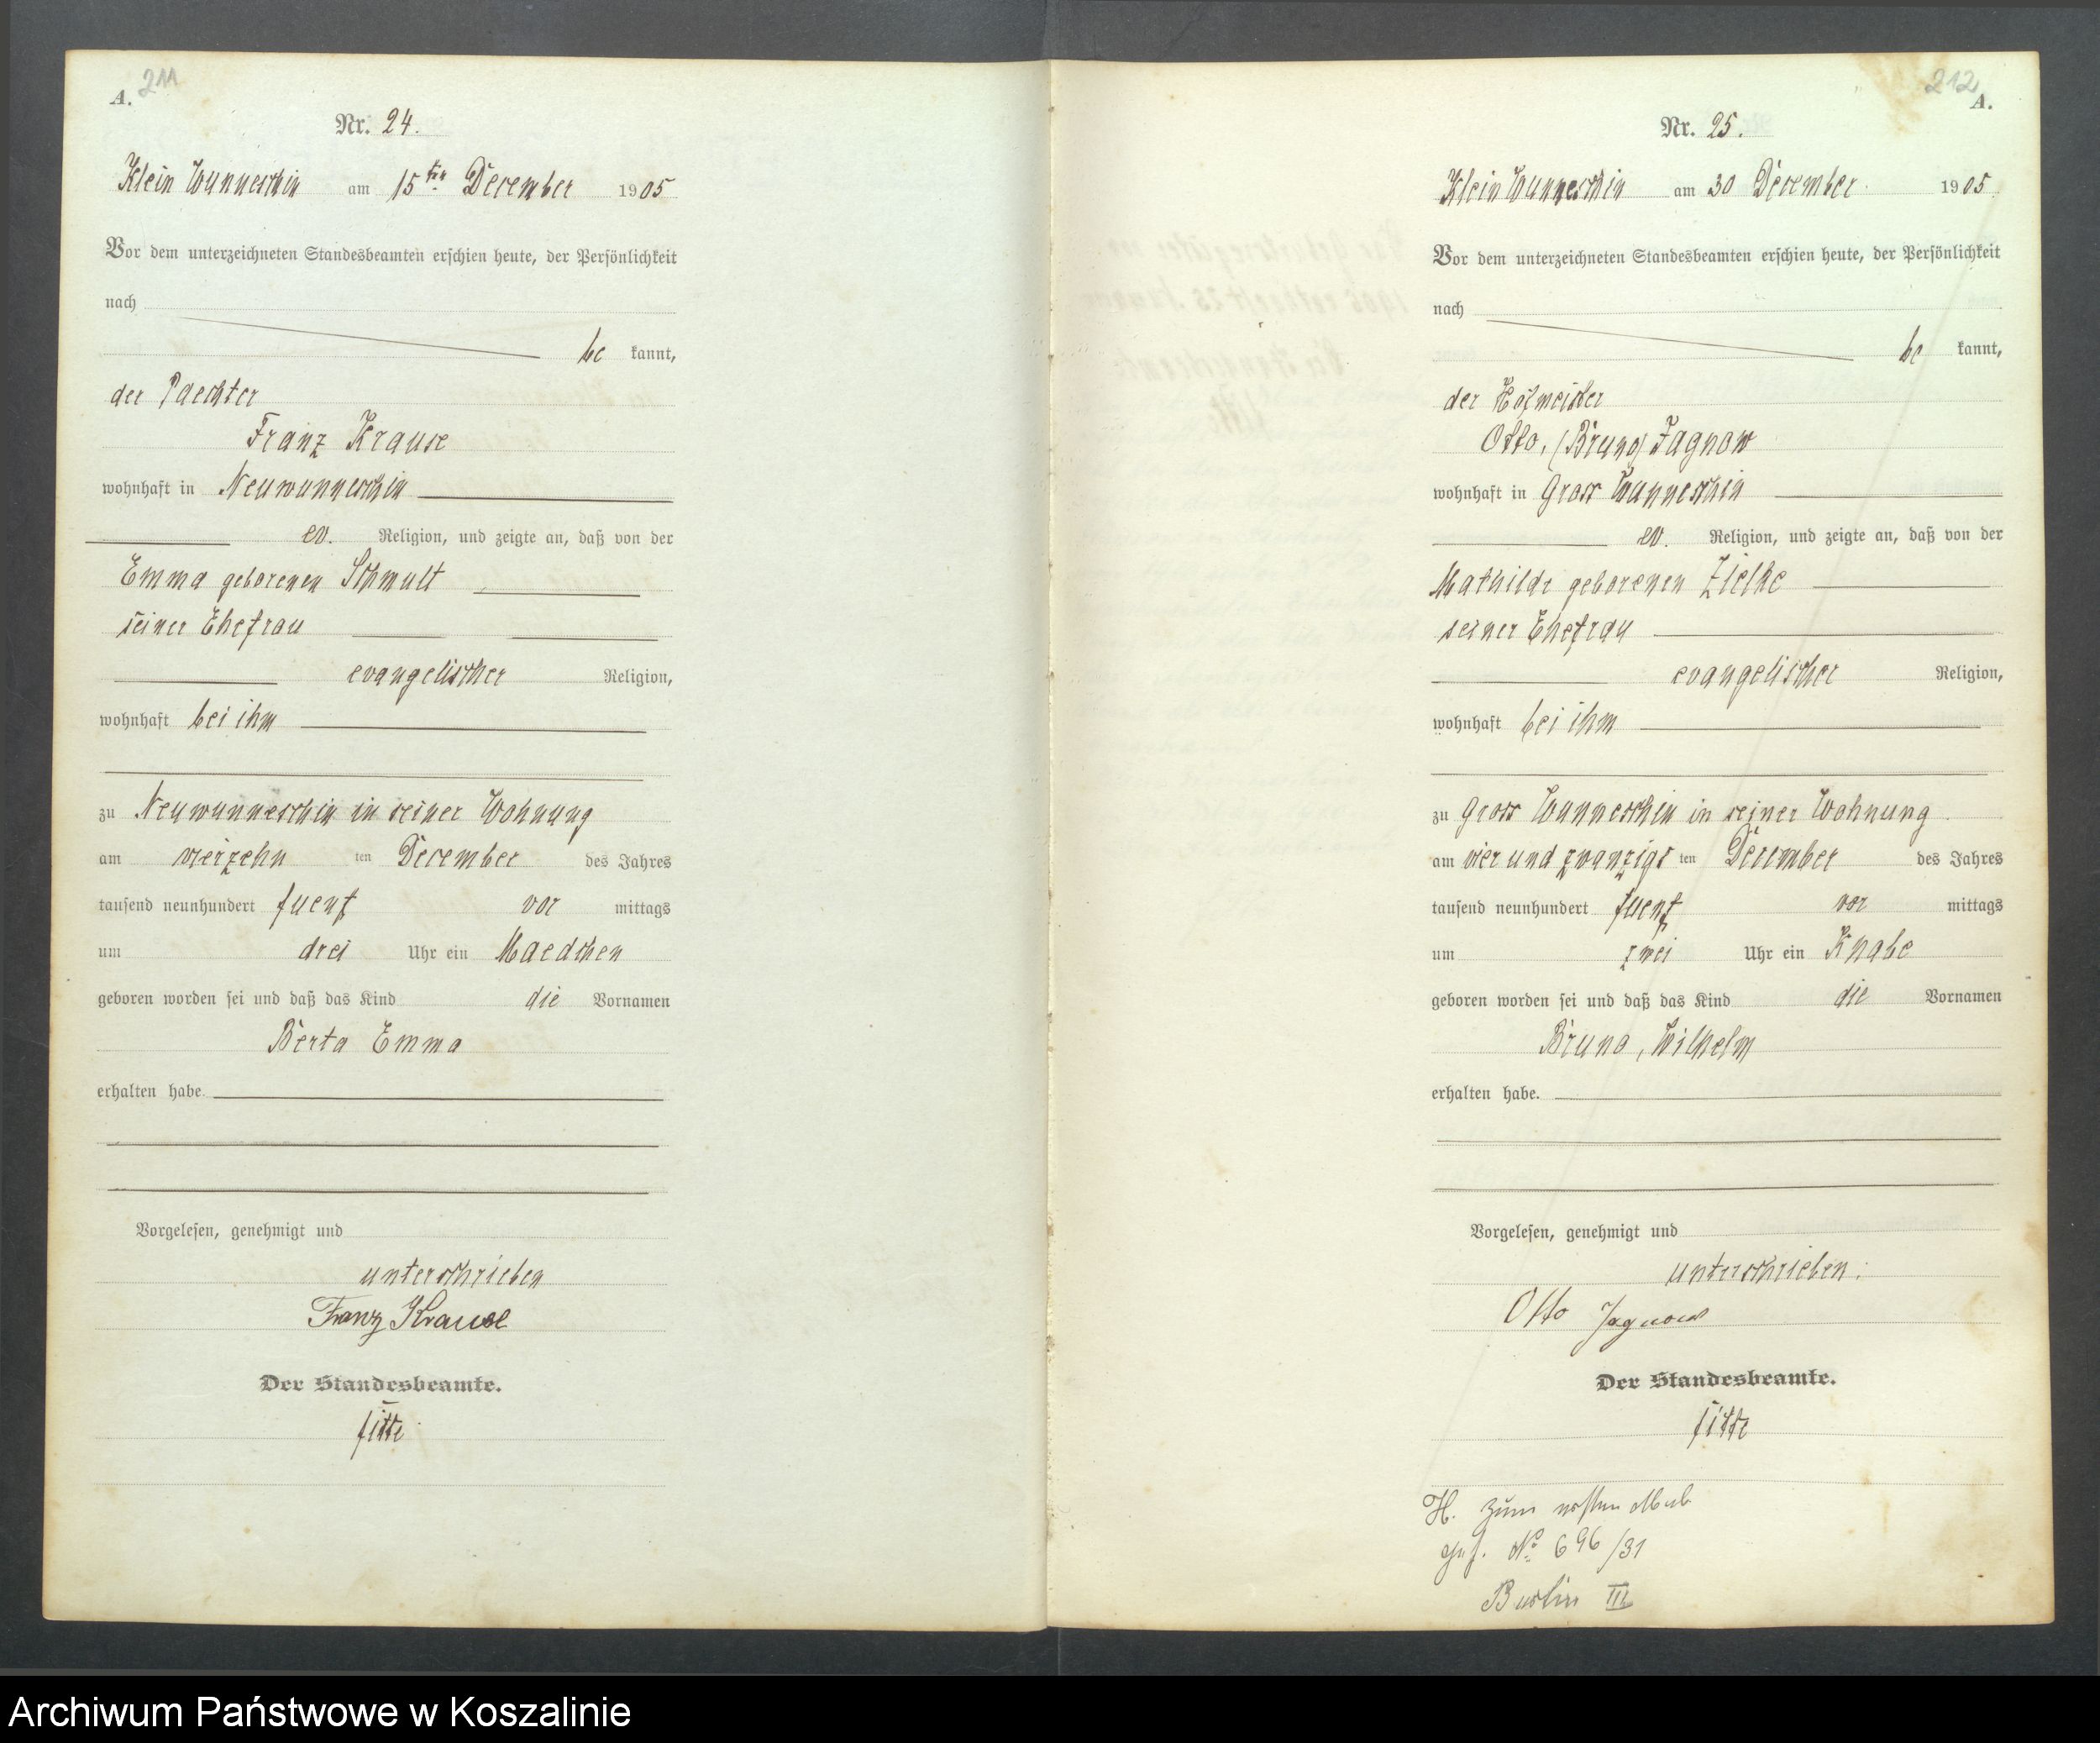 211
A.
Nr. 24.
Klein Wunneschin am 15ten December 1905
Vor dem unterzeichneten Standesbeamten erschien heute, der Persönlichkeit
nach
be kannt,
der Paechter
Franz Krause
wohnhaft in Neuwunneschin
ev. Religion, und zeigte an, daß von der
Emma geborenen
seiner Ehefrau
evangelischer Religion,
wohnhaft bei ihm
zu Neuwunneschin in seiner Wohnung
am vierzehn ten December des Jahres
tausend neunhundert fuenf vor mittags
um drei Uhr ein Maedchen
geboren worden sei und daß das Kind die Vornamen
Berta Emma
erhalten habe.
Vorgelesen, genehmigt und
unterschrieben
Franz Krause
Der Standesbeamte.
212
A.
Nr. 25.
Klein Wunneschin am 30 December 1905.
Vor dem unterzeichneten Standesbeamten erschien heute, der Persönlichkeit
nach
be kannt,
der Hofmeister
Otto, (Bruno) Jagnow
wohnhaft in Gross Wunneschin
ev. Religion, und zeigte an, daß von der
Mathilde geborenen Zielke
seiner Ehefrau
evangelischer Religion,
wohnhaft bei ihm
zu Gross Wunneschin in seiner Wohnung.
am vier und zwanzigs ten December des Jahres
tausend neunhundert fuenf vor mittags
um zwei Uhr ein Knabe
geboren worden sei und daß das Kind die Vornamen
Bruno, Wilhelm
erhalten habe.
Vorgelesen, genehmigt und
unterschrieben.
Otto Jagnow
Der Standesbeamte.
H. zum ersten Male
No 696/31
Berlin III
Archiwum Państwowe w Koszalinie